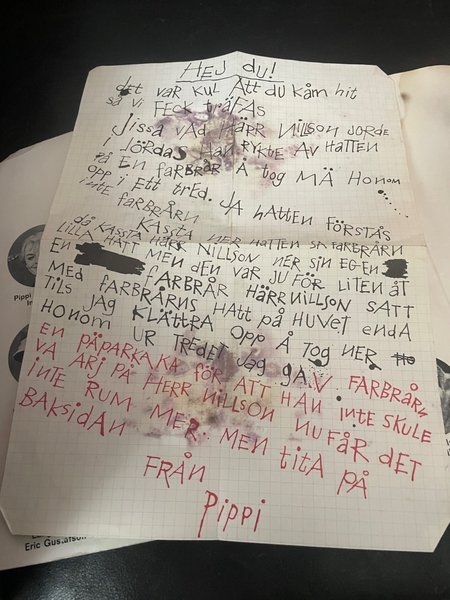 HEJ du!
det var kul Att du kåm hit
så vi FECK träFAS
Jissa vad HÄRR Nillson JORDE
I JÖRDAS HAN RYKTE AV HATTEN
på EN FARBRÅR Å tog MÄ HONOM
OPP i Ett tRED. JA HATTEN FÖRSTÅS
iNTE FARBRÅRN
då KASSTA NER HATTEN så FARBRÅRN
KASSTA HÄRR NILLSON NER SIN EGEN
LILLA HATT MEN dEN VAR JU FÖR LITEN åt
EN FARBRÅR HÄRR NILLSON SATT
MED FARBRÅRNS HATT på HUVET ENDA
tILS JAG KLÄTTRA OPP Å tOG NER
HONOM UR TREDET JAG GA.V FARBRÅRN
EN PÄPARKAKA FÖR ATT HAN iNtE SKULE
VA ARJ PÅ HERR NILLSON NU FÅR dET
iNTE RUM MER MEN tittA PÅ
BAKSIdAN
FRÅN
Pippi
Pippi
Eric Gustafson